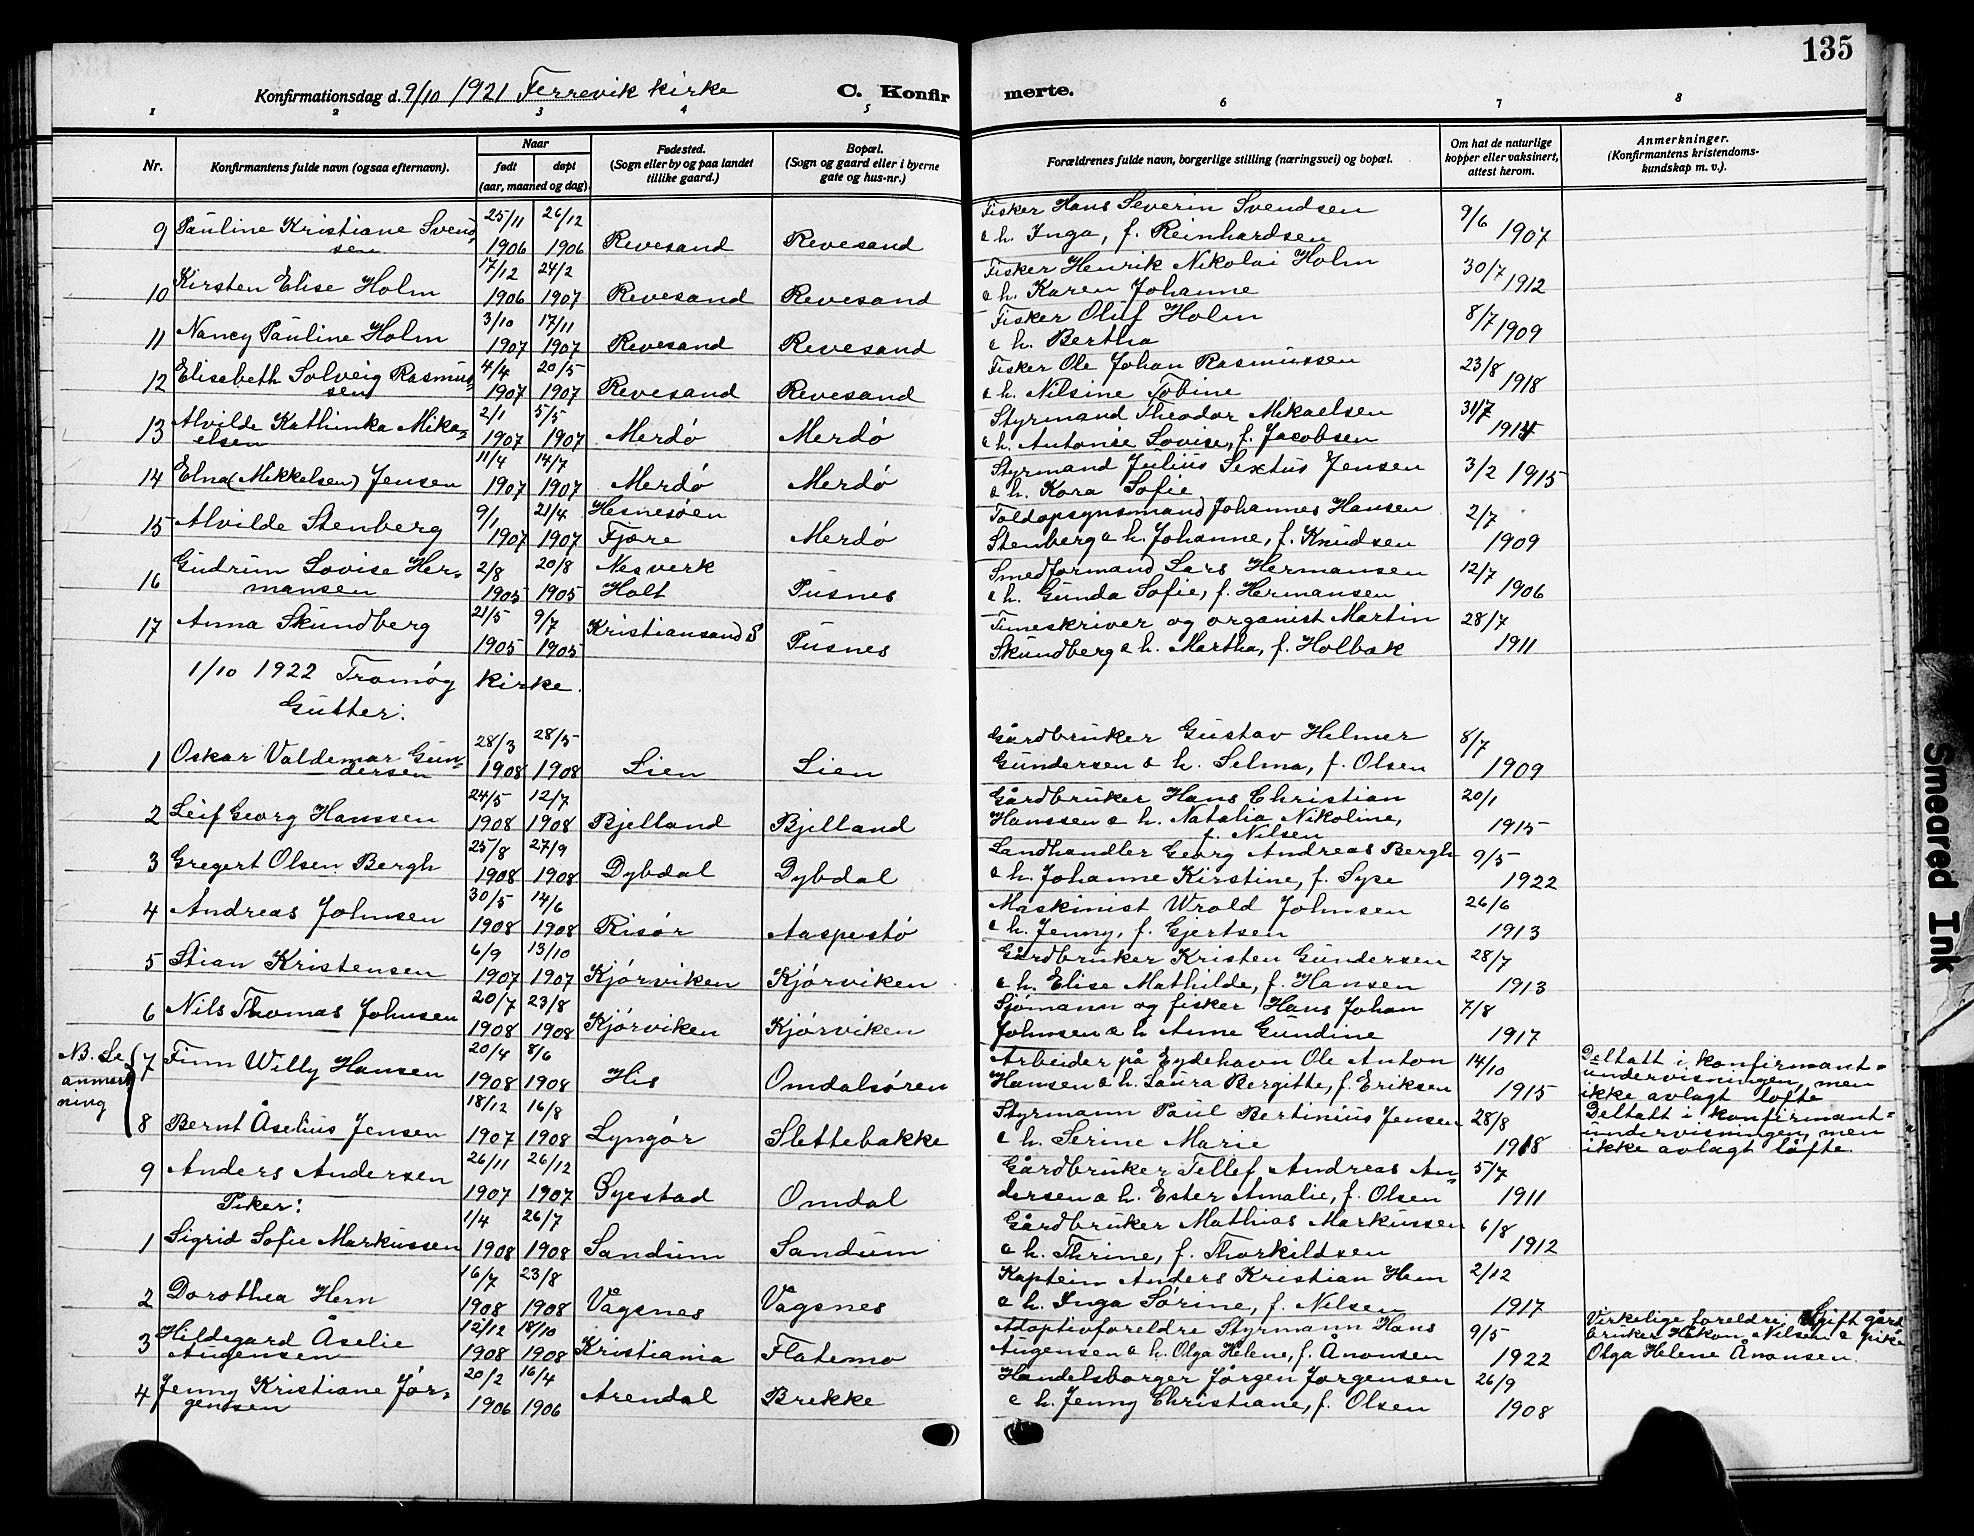 135
Konfirmationsdag d. 9/10 1921 Færevik kirke C. Konfirmerte.
1 2 3 4 5 6 7 8
Nr. Konfirmantens fulde navn (ogsaa efternavn). Naar født døpt (aar, maaned og dag). Fødested. (Sogn eller by og paa landet tillike gaard.) Bopæl. (Sogn og gaard eller i byerne gate og hus-nr.) Forældrenes fulde navn, borgerlige stilling (næringsvei) og bopæl. Om hat de naturlige kopper eller vaksinert, attest herom. Anmerkninger. (Konfirmantens kristendoms-kundskap m. v.).
9 Pauline Kristiane Svendsen 25/11 1906 26/12 1906 Revesand Revesand Fisker Hans Severin Svendsen & h. Inga, f. Reinhardsen 9/6 1907
10 Kirsten Elise Holm 17/12 1906 24/2 1907 Revesand Revesand Fisker Henrik Nikolai Holm & h. Karen Johanne 30/7 1912
11 Nancy Pauline Holm 3/10 1907 17/11 1907 Revesand Revesand Fisker Oluf Holm & h. Bertha 8/7 1909
12 Elisabeth Solveig Rasmussen 4/4 1907 20/5 1907 Revesand Revesand Fisker Ole Johan Rasmussen & h. Nilsine Tobine 23/8 1918
13 Alvilde Kathinka Mikaelsen 2/1 1907 5/5 1907 Merdø Merdø Styrmand Theodor Mikaelsen & h. Antonie Lovise, f. Jacobsen 31/7 1914
14 Elna (Mikkelsen) Jensen 11/4 1907 14/7 1907 Merdø Merdø Styrmand Julius Sextus Jensen & h. Kora Sofie 3/2 1915
15 Alvilde Stenberg 9/1 1907 21/4 1907 Hesnesøen Fjære Merdø Toldopsynsmand Johannes Hansen Stenberg & h. Johanne, f. Knudsen 2/7 1909
16 Gudrun Lovise Hermansen 2/8 1905 20/8 1905 Nesverk Holt Pusnes Smedformand Lars Hermansen & h. Gunda Sofie, f. Hermansen 12/7 1906
17 Anna Skundberg 21/5 1905 9/7 1905 Kristiansand S Pusnes Timeskriver og organist Martin Skundberg & h. Martha, f. Holbæk 28/7 1911
1/10 1922 Tromøy kirke.
Gutter:
1 Oskar Valdemar Gundersen 28/3 1908 28/5 1908 Lien Lien Gårdbruker Gustav Helmer Gundersen & h. Selma, f. Olsen 8/7 1909
2 Leif Georg Hanssen 24/5 1908 12/7 1908 Bjelland Bjelland Gårdbruker Hans Christian Hanssen & h. Natalia Nikoline, f. Nilsen 20/1 1915
3 Gregert Olsen Bergh 25/8 1908 27/9 1908 Dybdal Dybdal Landhandler Georg Andreas Bergh & h. Johanne Kirstine, f. Syse 9/5 1922
4 Andreas Johnsen 30/5 1908 14/6 1908 Risør Aaspestø Maskinist Wrold Johnsen & h. Jenny, f. Gjertsen 26/6 1913
5 Stian Kristensen 6/9 1907 13/10 1907 Kjørviken Kjørviken Gårdbruker Kristen Gundersen & h. Elise Mathilde, f. Hansen 28/7 1913
6 Nils Thomas Johnsen 20/7 1908 23/8 1908 Kjørviken Kjørviken Sjømann og fisker Hans Johan Johnsen & h Anne Gundine 7/8 1917
N.B. Se anmerkning
7 Finn Willy Hansen 20/4 1908 8/6 1908 His Omdalsøren Arbeider på Eydehavn Ole Anton Hansen & h. Laura Bergitte, f. Eriksen 14/10 1915 Deltatt i konfirmantundervisningen, men ikke avlagt løfte
8 Bernt Åselius Jensen 18/12 1907 16/8 1908 Lyngør Slettebakke Styrmann Paul Bertinius Jensen & h. Serine Marie 28/8 1918 Deltatt i konfirmantundervisningen, men ikke avlagt løfte.
9 Anders Andersen 26/11 1907 26/12 1907 Øyestad Omdal Gårdbruker Tellef Andreas Andersen & h. Ester Amalie, f. Olsen 5/7 1911
Piker:
1 Sigrid Sofie Markussen 1/4 1908 26/7 1908 Sandum Sandum Gårdbruker Mathias Markussen & h. Thrine, f. Thorkildsen 6/8 1912
2 Dorothea Hem 16/7 1908 23/8 1908 Vågsnes Vågsnes Kaptein Anders Kristian Hem & h. Inga Sørine, f. Nilsen 2/12 1917
3 Hildegard Åselie Augensen 12/12 1908 18/10 1908 Kristiania Flatemo Adoptivforeldre Styrmann Hans Augensen & h. Olga Helene, f. Ånonsen 9/5 1922 Virkelige foreldre: Ugift gårdbruker Håkon Nilsen & pike Olga Helene Ånonsen.
4 Jenny Kristiane Jørgensen 20/2 1906 16/4 1906 Arendal Brekke Handelsborger Jørgen Jørgensen & h. Jenny Christiane, f. Olsen 26/9 1908
Smeared Ink